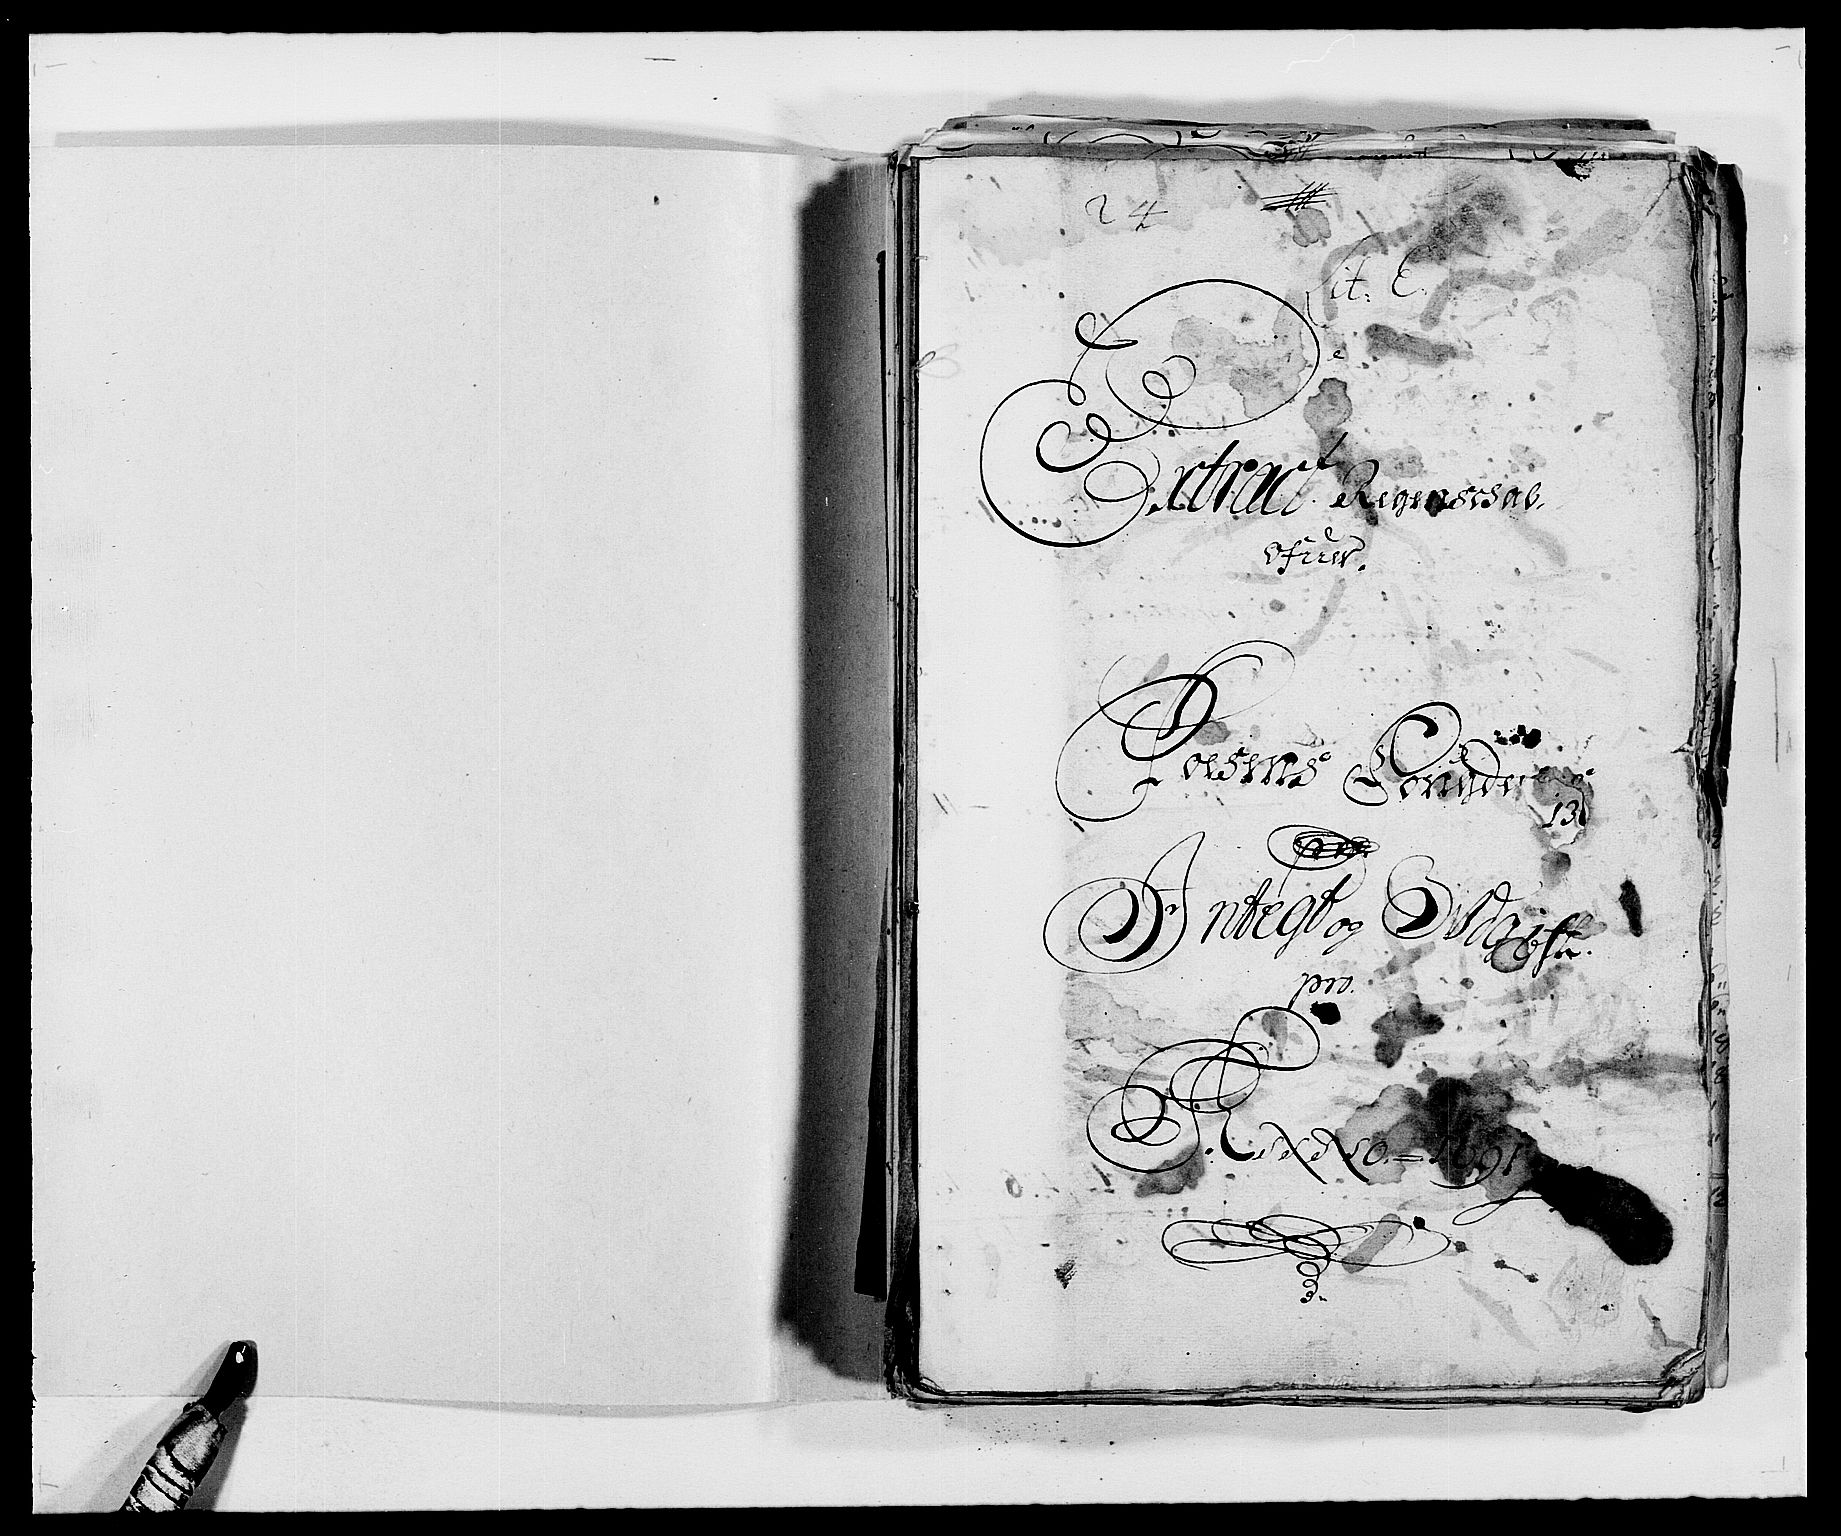 24
Lit. E.
Extract Regenschab.
ofuer.
Fosens Fougderies
13
Indtegt og Udgifft.
pro.
Anno. = 1691
3.